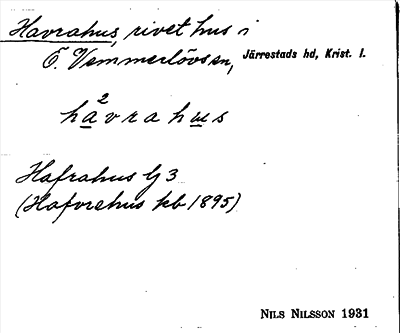 Havrahus, rivet hus i
Ö. Vemmerlövs sn, Järrestads hd, Krist. l.
hа̲²vrahu̲s
Hafrahus G 3
(Hafvrehus kb 1895)
NILS NILSSON 1931